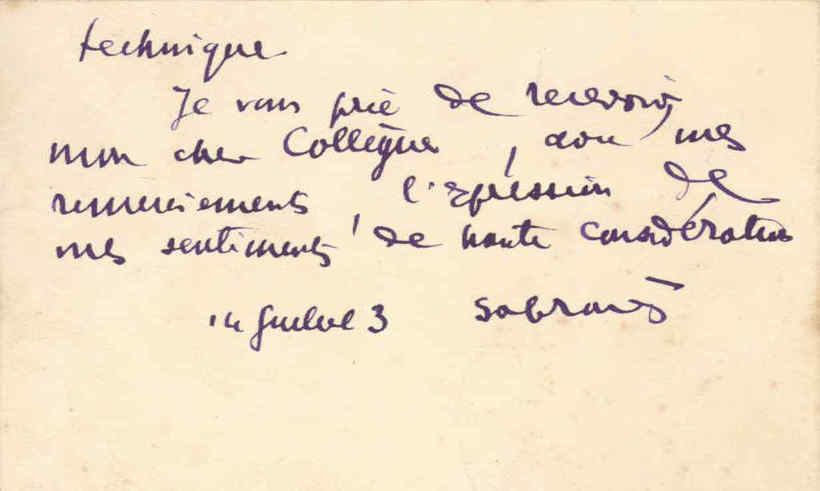 technique
Je vous prie de recevoir,
mon cher Collègue, avec mes
remerciements, l'expression de
mes sentiments de haute considération